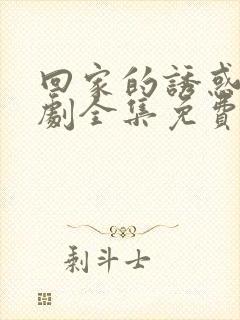 回家的誘惑
劇全集免費
剩斗士